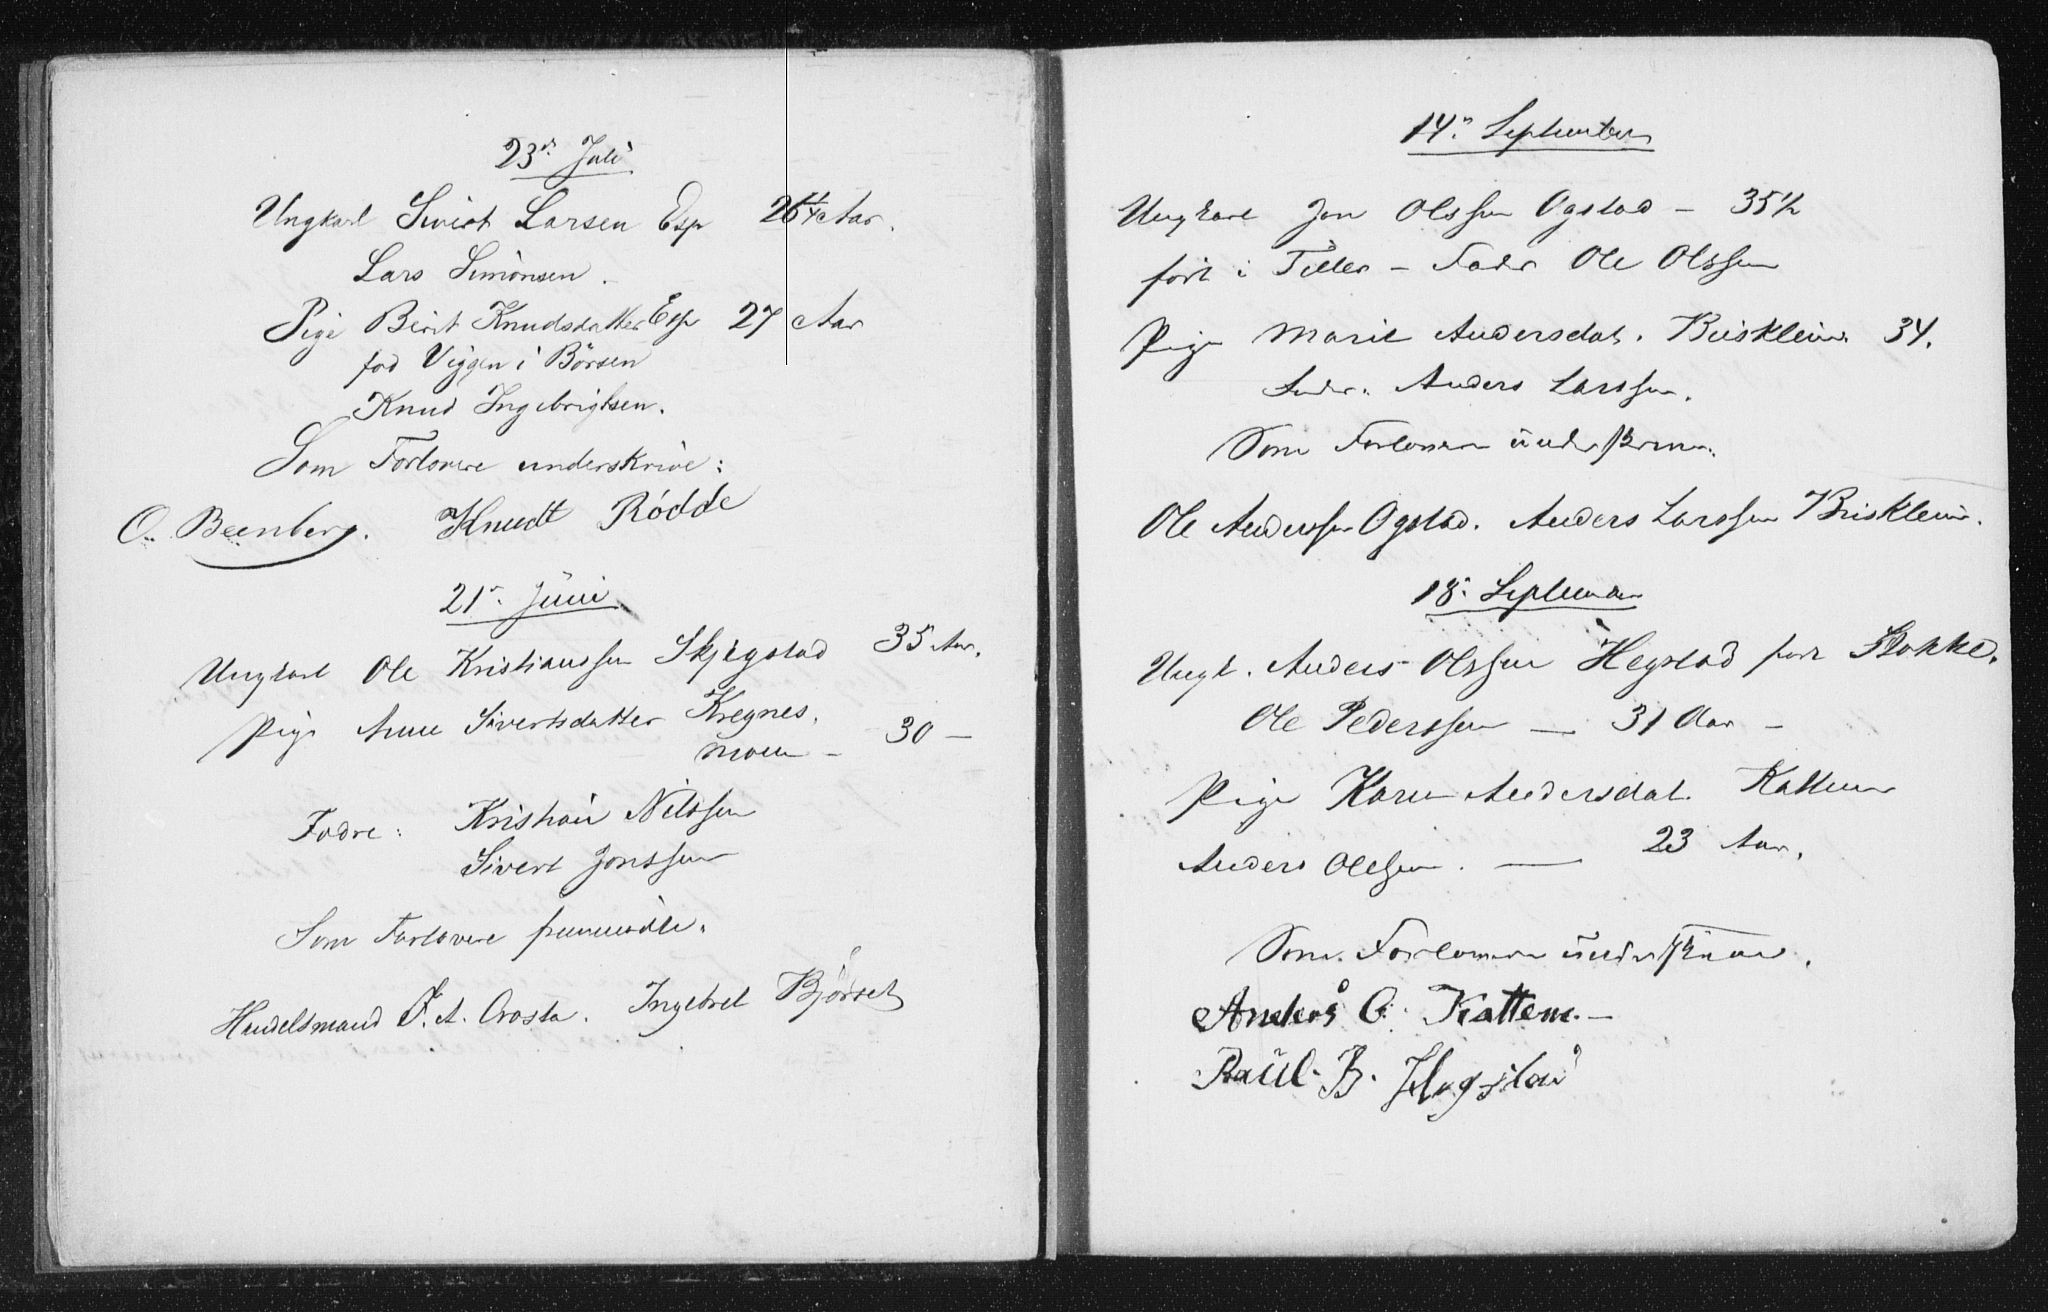 23de Juli
Ungkarl Sivert Larsen Esp 26 1/4 Aar.
Lars Simonsen.
Pige Berit Knudsdatter Esp 27 Aar
fød Viggen i Börsen
Knud Ingebrigtsen.
Som Forlovere underskrive:
O. Beenberg. Knudt Rödde
21de Juni
Ungkarl Ole Kristianssen Skjegstad 35 Aar.
Pige Anne Sivertsdatter Kregnes
moen - 30 -
Fædre: Kristian Nilssen
Sivert Jonssen
Som Forlovere fremmödte.
Handelsmand A. Crosta. Ingebret Bjørset
14. September
Ungkarl Jon Olssen Ogstad - 35 1/2
født i Tiller - Fader Ole Olssen
Pige Marit Andersdat. Kvisklein. 34.
Fader. Anders Larssen.
Som Forlovere underskriver.
Ole Anderssen Ogstad. Anders Larssen Brisklein.
18. September
Ungk. Anders Olssen Hegstad født Stokke.
Ole Pederssen — 31 Aar -
Pige Karen Andersdat. Kattem
23 Aar.
Anders Olssen. —
Som Forlovere underskriver.
Anders O. Kattem. -
Paul. B. Hegstad